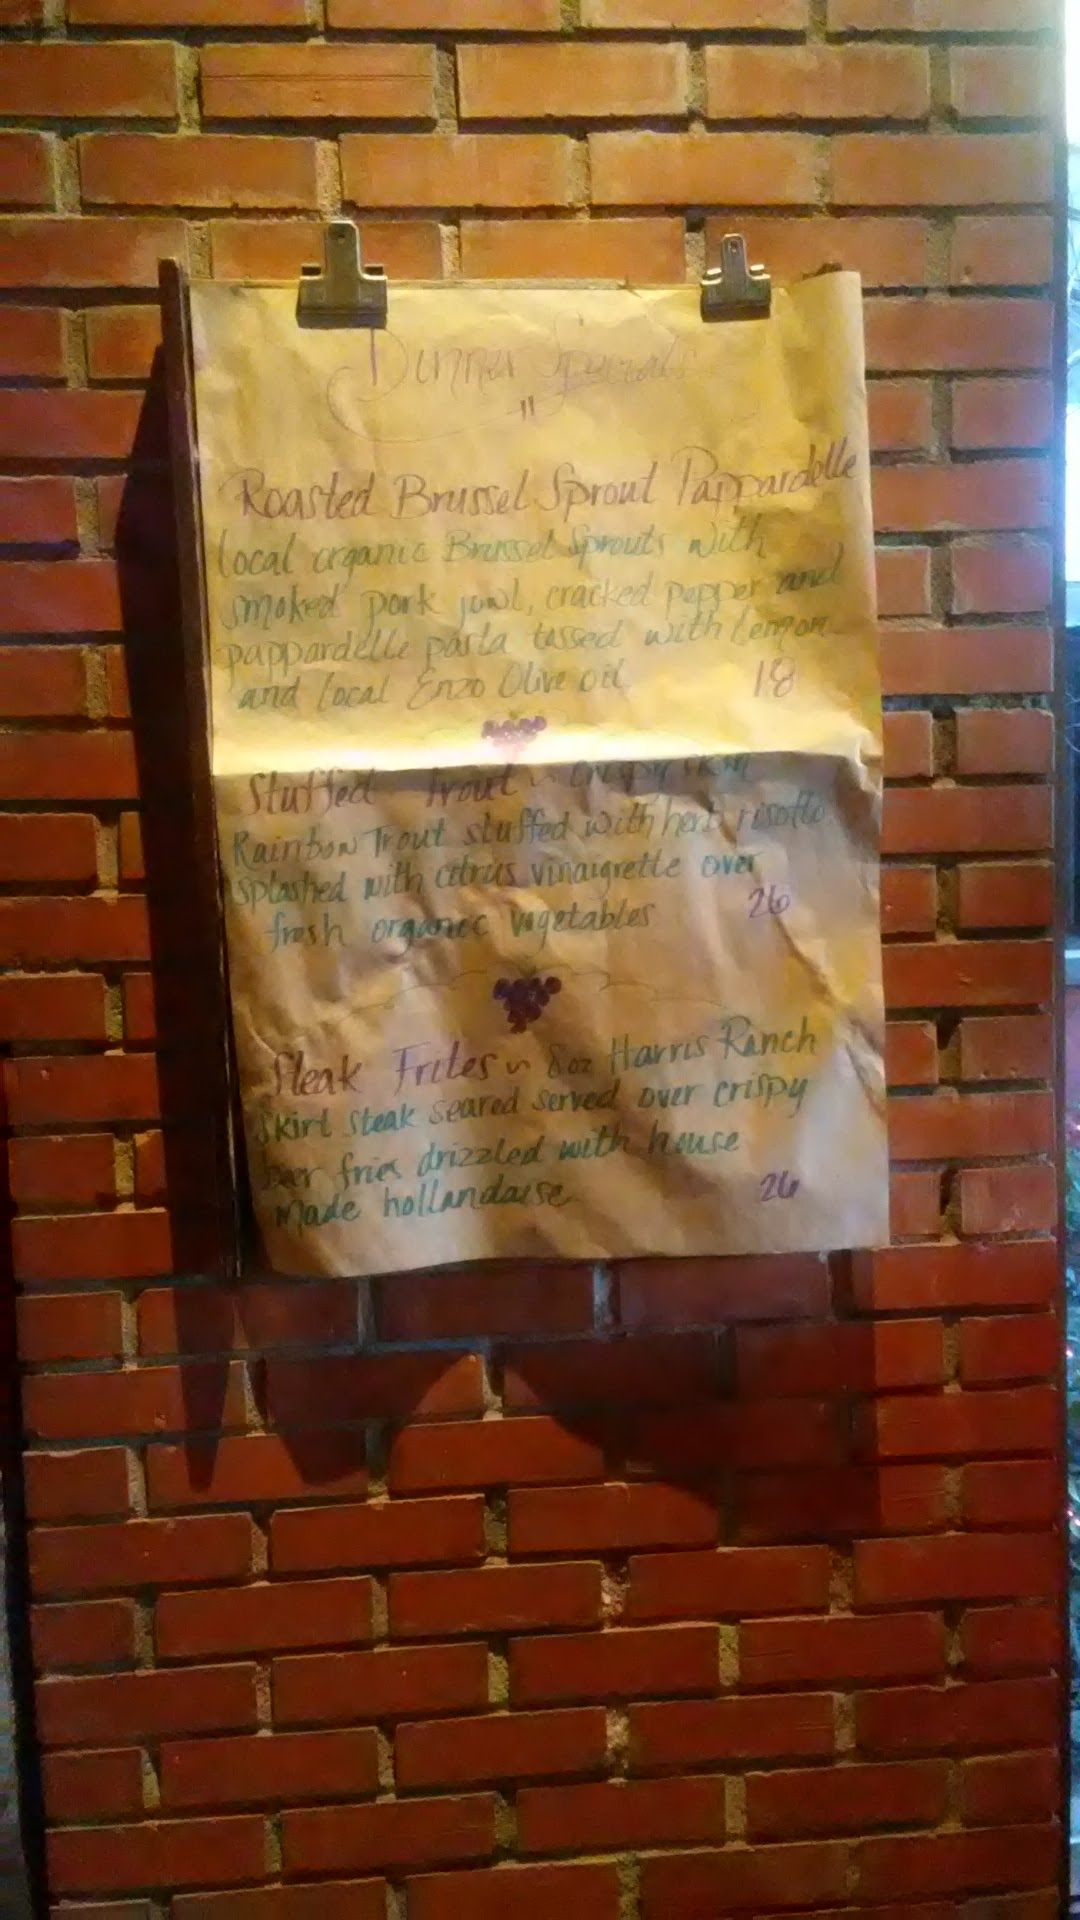 Dinner Specials
Roasted Brussel Sprout Pappardelle
local organic Brussel Sprouts with
smoked pork jowl, cracked pepper and
pappardelle pasta tossed with lemon
and local Enzo Olive oil. 18
Stuffed Trout ~ crispy skin
Rainbow Trout stuffed with herb risotto
splashed with citrus vinaigrette over
fresh organic vegetables 26
Steak Frites ~ 8oz Harris Ranch
Skirt steak seared served over crispy
beer fries drizzled with house
made hollandaise 26